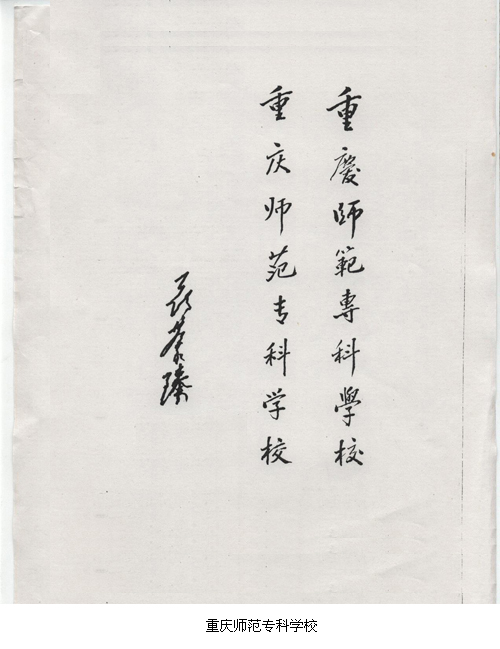 重慶師範專科學校
重庆师范专科学校
聂荣臻
重庆师范专科学校